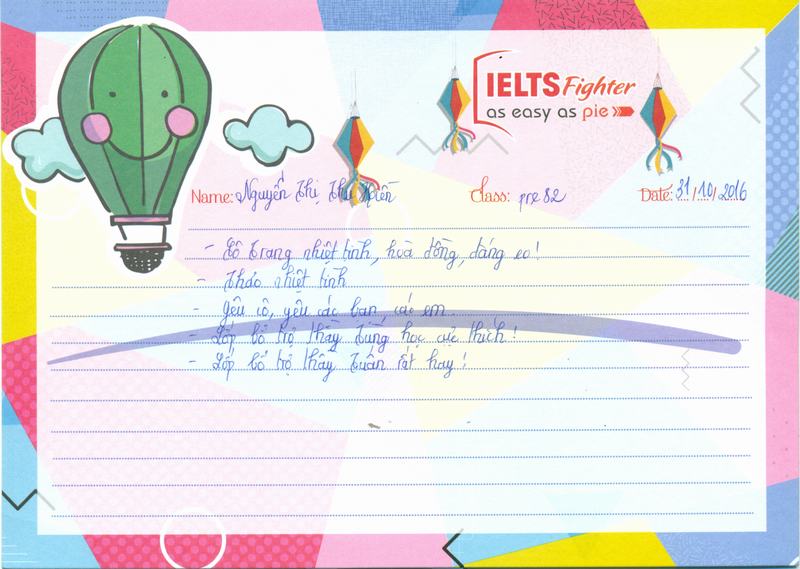 IELTS Fighter
as easy as pie
Name: Nguyễn Thị Thu Hiền Class: pre 82 Date: 31/10/2016
- Cô Trang nhiệt tình, hoà đồng, dáng eo!
- Thảo nhiệt tình
- Yêu cô, yêu các bạn, các em.
- Lớp bổ trợ thầy Tùng học cực thích!
- Lớp bổ trợ thầy Tuấn rất hay!